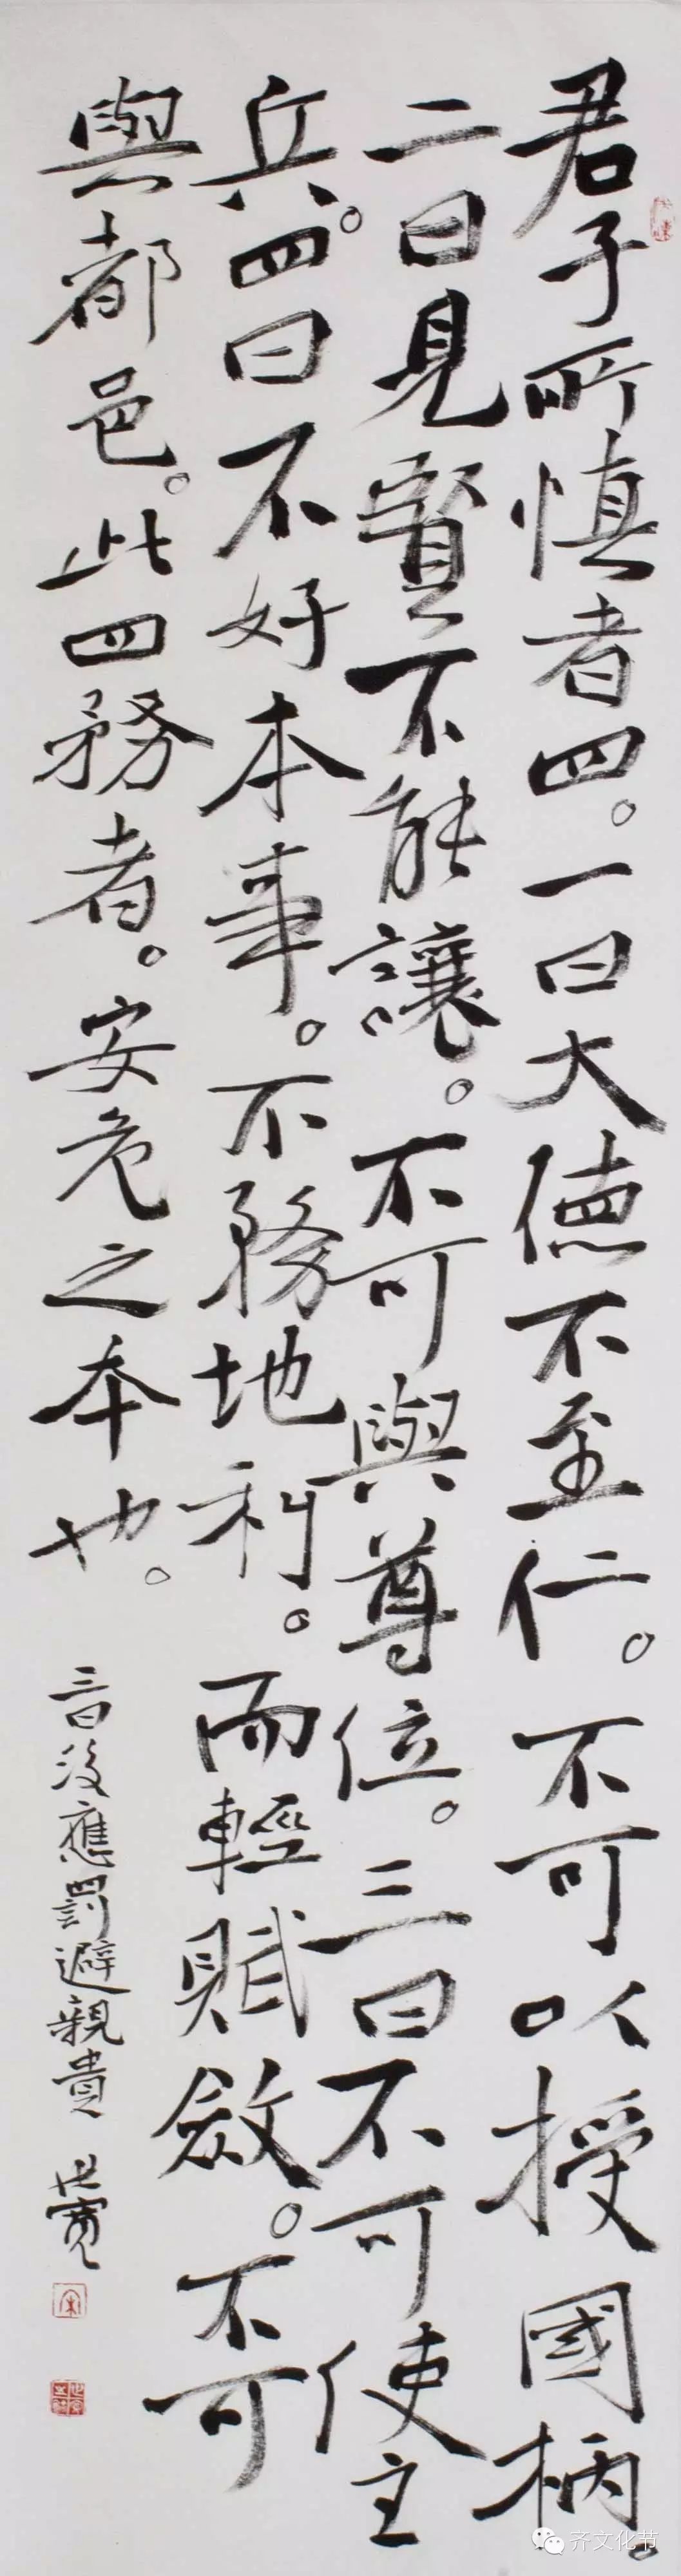 君子所慎者四。一曰大德不至仁。不可以授國柄。
二曰見賢不能讓。不可與尊位。三曰不可使主
兵。四曰不好本事。不務地利。而輕賦斂。不可
與都邑。此四務者。安危之本也。
三曰後應罰避親貴 世寬
齐文化节